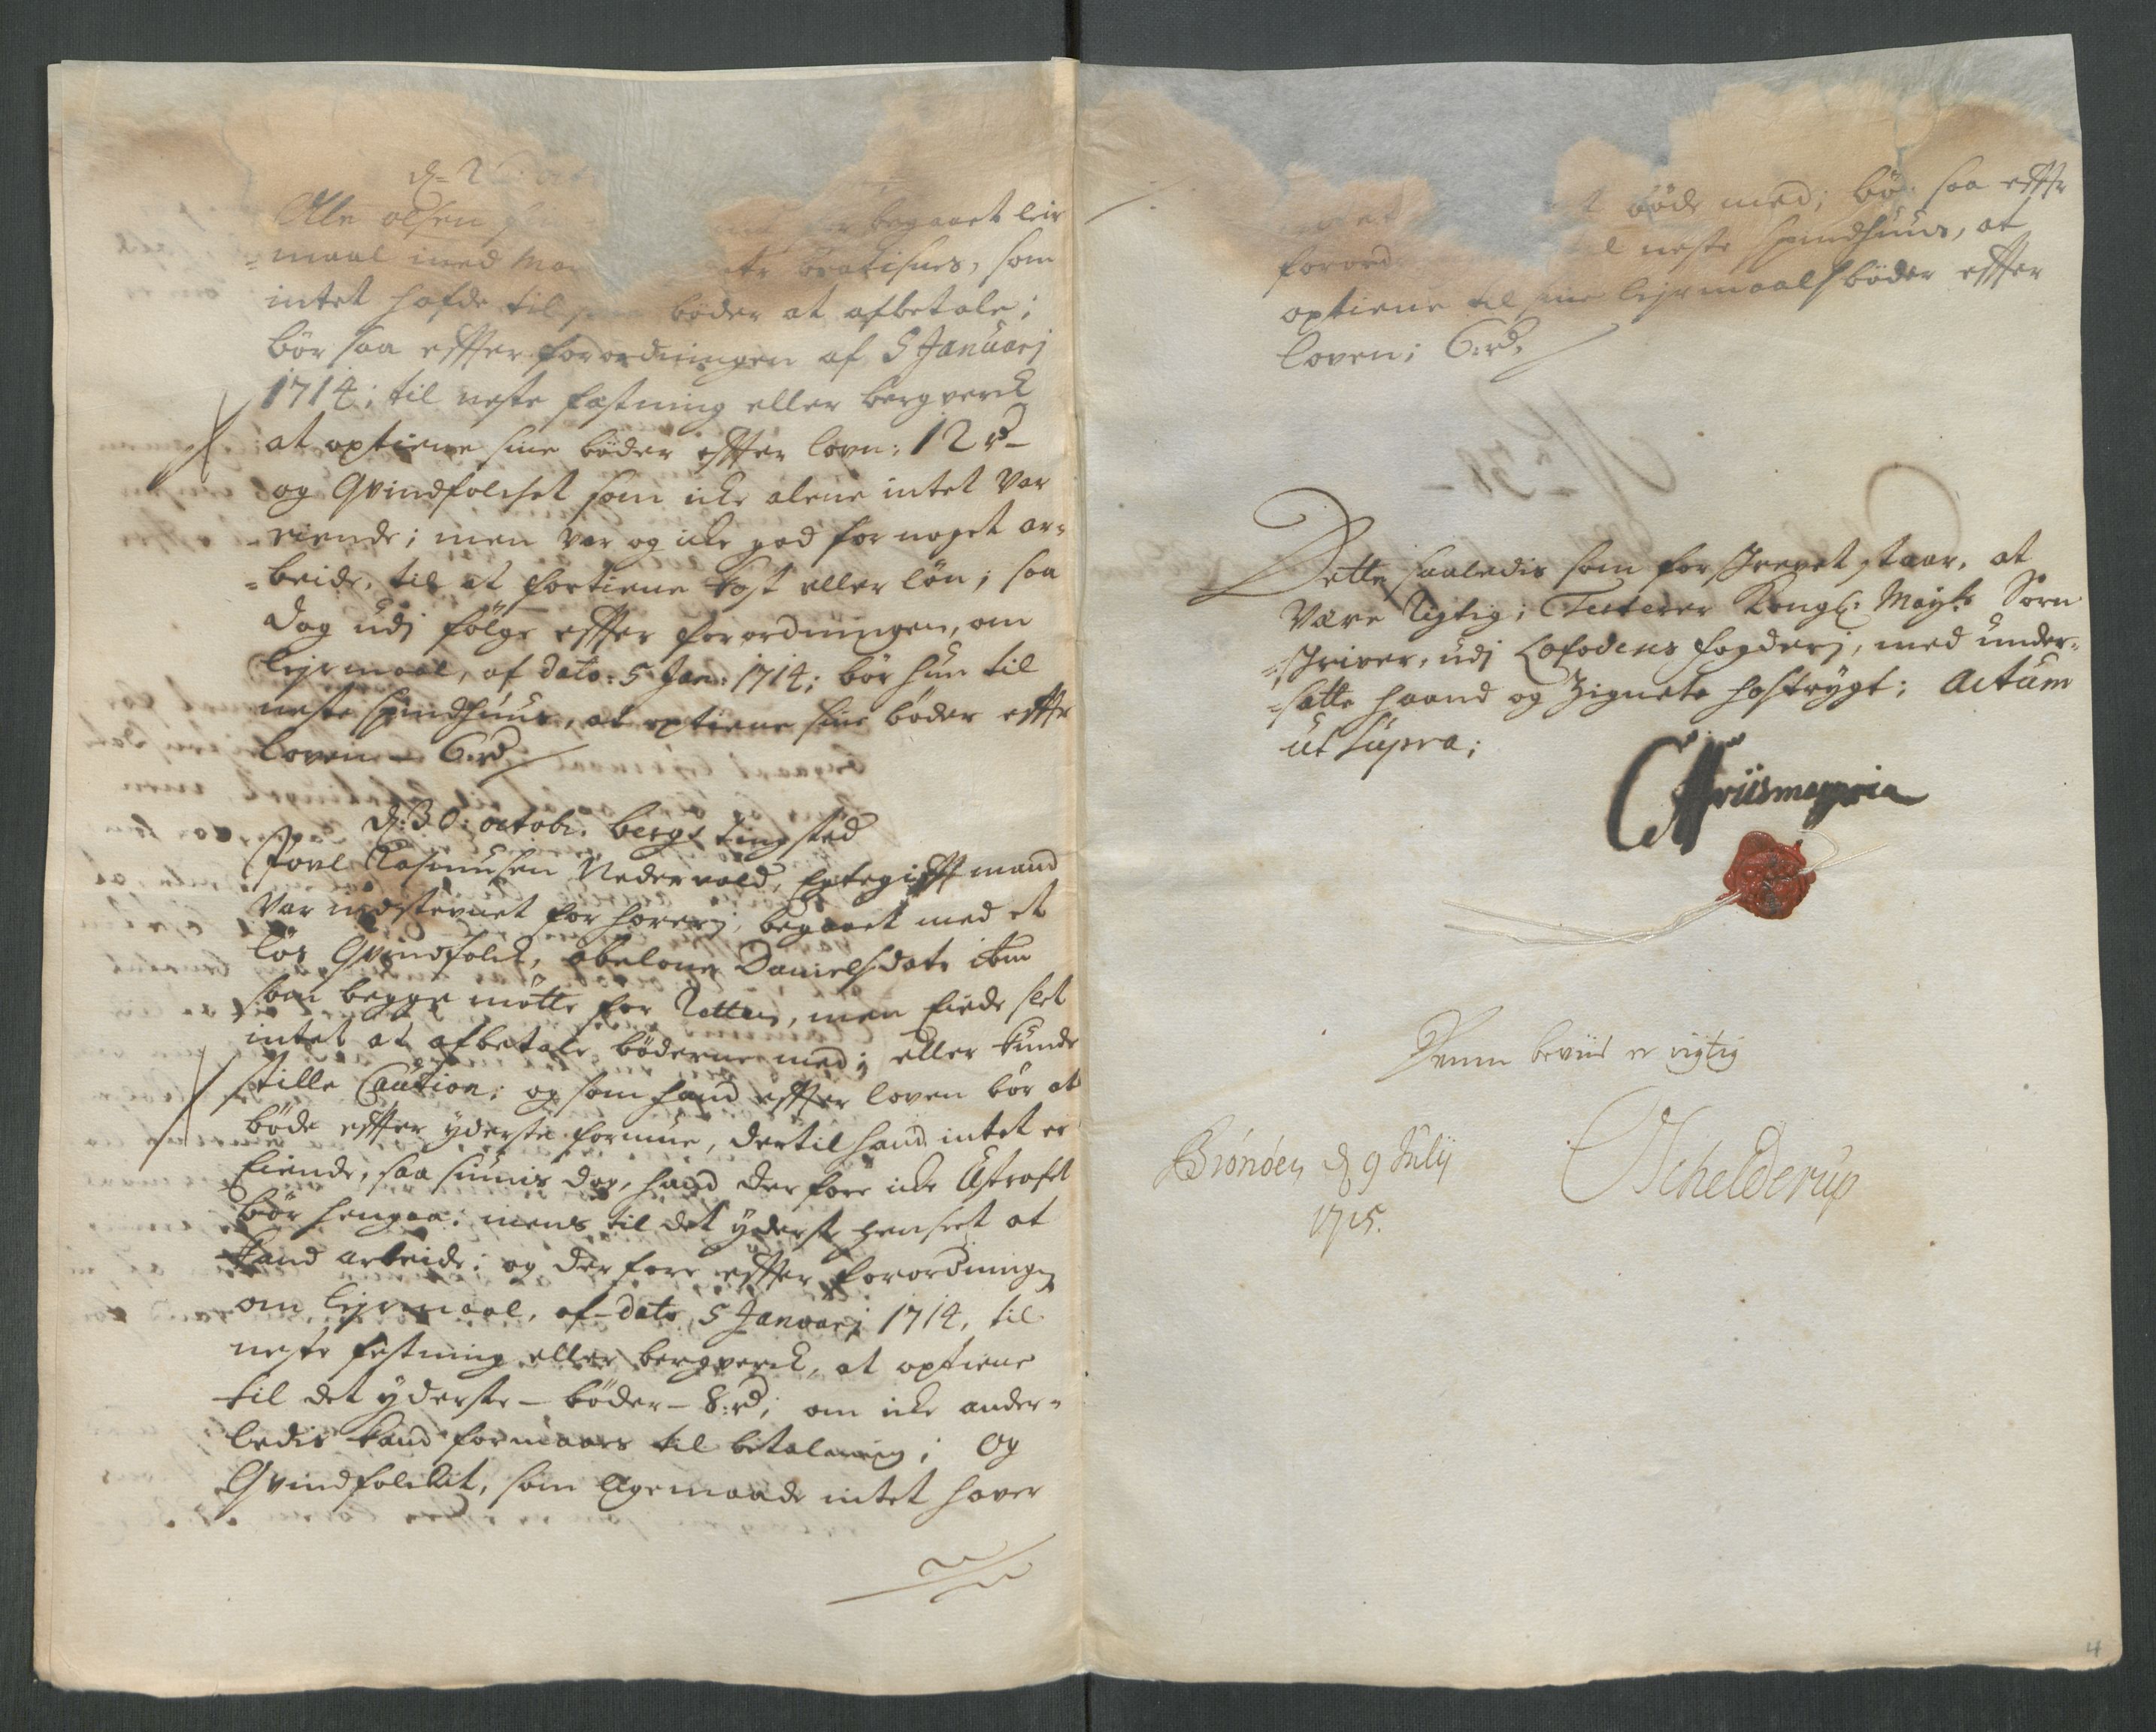 d:
Ole olsen begaaet leir
=maal med bratisnes, som
intet hafde til böder at afbetale;
bör saa effter forordningen af 5 Januarj
1714; til neste fæstning eller bergverck
at optiene sine böder effter lovn: 12 rd
og Qvindfolchet som icke alene intet var
eiende; men var og icke god for noget ar=
=beide, til at fortiene kost eller lön; saa
dog udj fölge effter forordningen, om
leyrmaal, af dato: 5 Jan: 1714; bör hun til
neste spindhuus, at optiene sine böder effter
loven - 6 rd
d: 30: octobr: bergs tingsted
Povl Rasmusen Nedervold, Egtegifft mand
var indstevnet for horerj, begaaet med et
lös Qvindfolch, abelone Danielsdatr ibm
som begge mötte for Retten, men Eiede slet
intet at afbetale böderne med; eller kunde
stille Caution; og som hand effter loven bör at
böde effter yderste formue, dertil hand intet er
Eiende, saa siunis dog, hand derfore icke Ustrafet
bör hengaa: mens til det yderst henseet at
hand arbeide: og derfore effter forordningen
om leyrmaal, af dato 5 Januarj 1714, til
neste festning eller bergverck, at optiene
til det yderste - böder - 8: rd; om icke ander=
ledis kand formaaes til betalning; Og
Qvindfolchet, som ligemaade intet haver
böde med; bör saa effter
forord neste spindhuus, at
optiene til sine leyrmaals böder effter
loven; 6: rd,
Dette saaledis som forskrevet staar, at
være Rigtig; Testerer Kongl: Mayts Sorn
=skriver, udj Lofodens fogderj, med under=
=satte haand og Zignete hostrygt; Actum
ut supra;
Denne beviis er rigtig
Brönöen d 9 Julij
1715.
Schelderup
4